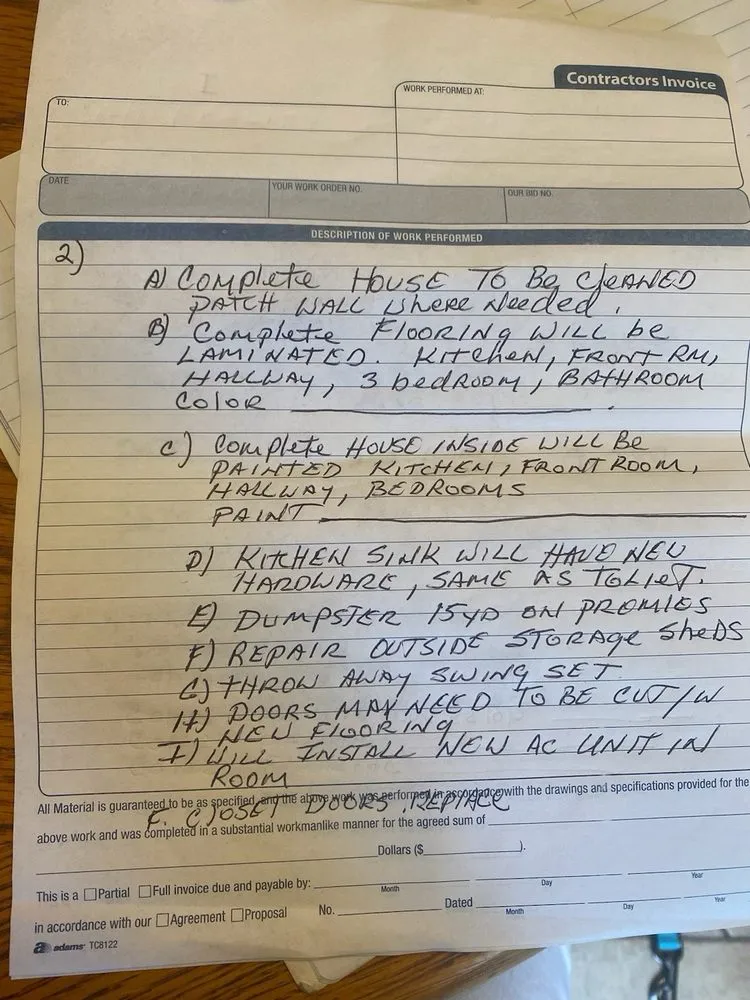 Contractors Invoice
TO:
WORK PERFORMED AT:
DATE
YOUR WORK ORDER NO.
OUR BID NO.
DESCRIPTION OF WORK PERFORMED
2)
A) COMPLETE HOUSE TO BE CLEANED
PATCH WALL WHERE NEEDED.
B) COMPLETE FLOORING WILL be
LAMINATED. KITCHEN, FRONT RM,
HALLWAY, 3 bedROOM, BATHROOM
COLOR
C) COMPLETE HOUSE INSIDE WILL BE
PAINTED KITCHEN, FRONT ROOM,
HALLWAY, BEDROOMS
PAINT
D) KITCHEN SINK WILL HAVE NEW
HARDWARE, SAME AS TOLIET.
E) DUMPSTER 15YD ON PROMIES
F) REPAIR OUTSIDE STORAGE SHEDS
G) THROW AWAY SWING SET
H) DOORS MAY NEED TO BE CUT/W
NEW FLOORING
I) WILL INSTALL NEW AC UNIT IN
ROOM
All Material is guaranteed to be as specified, and the above work was performed in accordance with the drawings and specifications provided for the
F. CLOSET DOORS REPLACE
above work and was completed in a substantial workmanlike manner for the agreed sum of
Dollars ($ ).
This is a ☐ Partial ☐ Full invoice due and payable by:
Month Day Year
in accordance with our ☐ Agreement ☐ Proposal No. Dated
Month Day Year
adams TC8122